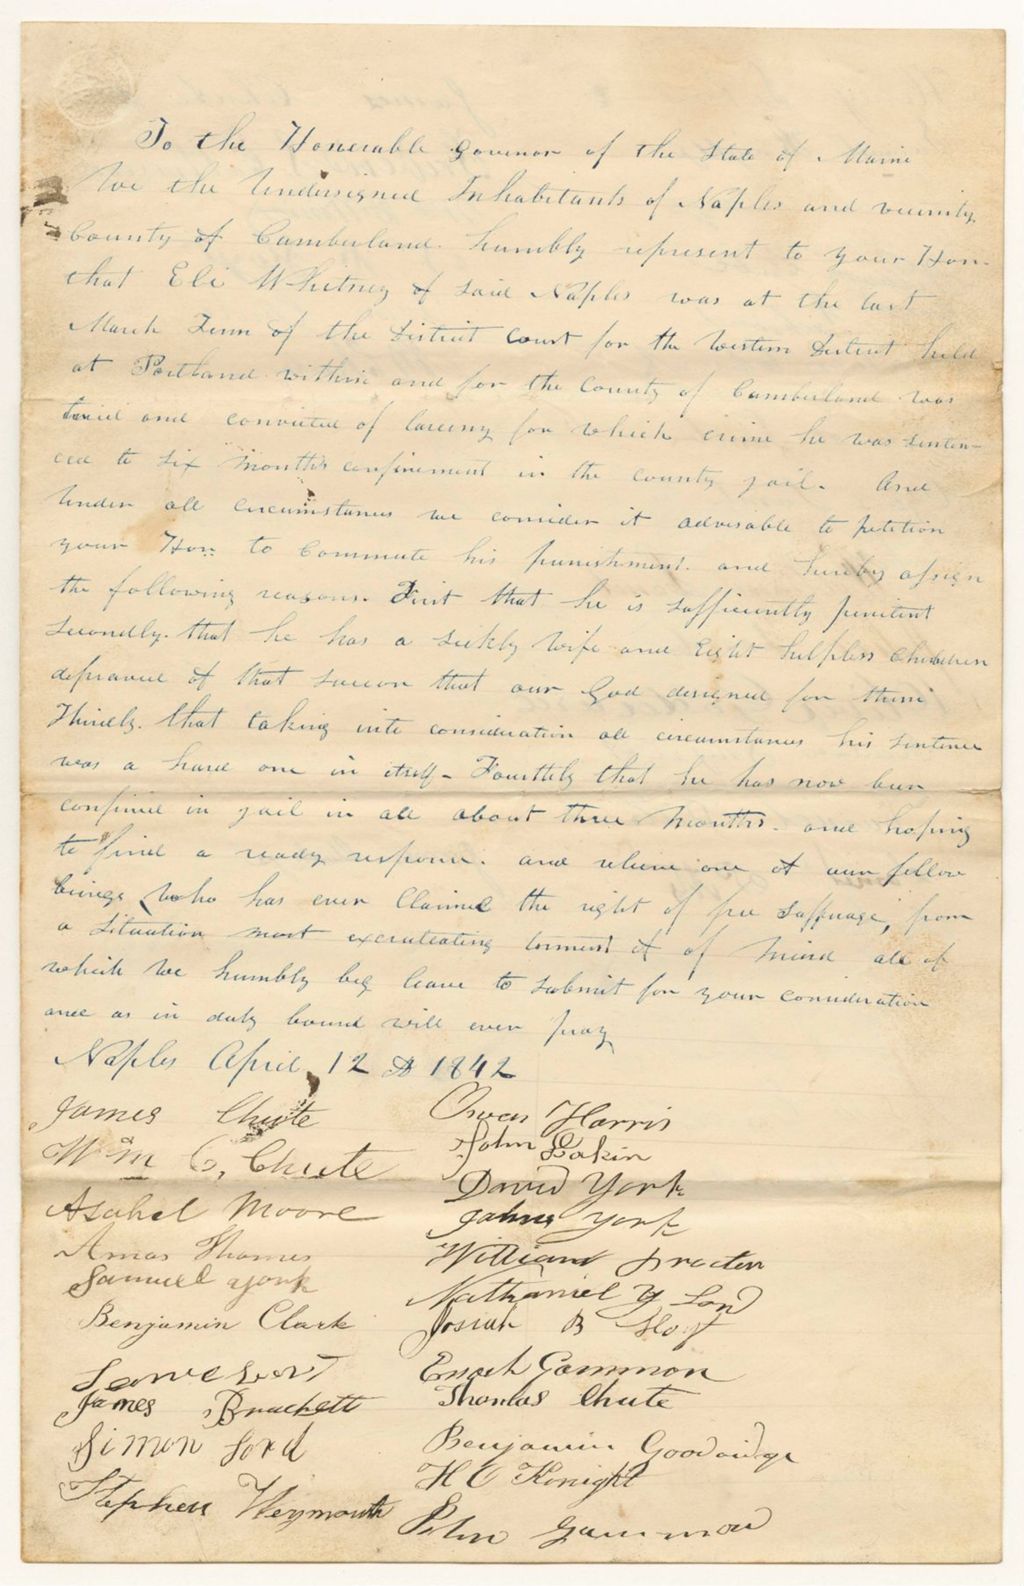 To the Honerable Govenor of the State of Maine
We the Undersigned Inhabitants of Naples and vicinity
County of Cumberland. humbly represent to your Hon.
that Eli Whitney of said Naples was at the last
March Term of the District Court for the Western District held
at Portland within and for the County of Cumberland was
tried and convicted of larceny for which crime he was senten-
ced to six months confinement in the county jail. And
Under all circumstances we consider it advisable to petition
your Hon. to Commute his punishment. and hereby assign
the following reasons. First that he is sufficiently penitent
Secondly. that he has a sickly wife and Eight helpless children
depraved of that succor that our God designed for them
Thirdly. that taking into consideration all circumstances his sentence
was a hard one in itself - Fourthly that he has now been
confined in jail in all about three months. and hoping
to find a ready response. and relieve one of our fellow
beings who has ever Claimed the right of free suffrage, from
a situation most excruciating torment of mind all of
which we humbly beg leave to submit for your consideration
and as in duty bound will ever pray
Naples April 12 AD 1842
James Chute
Wm C. Chute
Asahel Moore
Amos Thomes
Samuel York
Benjamin Clark
James Brackett
Simon Lord
Stephen Weymouth
Owen Harris
John Lakin
David York
York
William Procter
Nathaniel Y Lord
Josiah B Hoyt
Enoch Gammon
Thomas Chute
Benjamin Goodridge
H C Knight
John Gammon